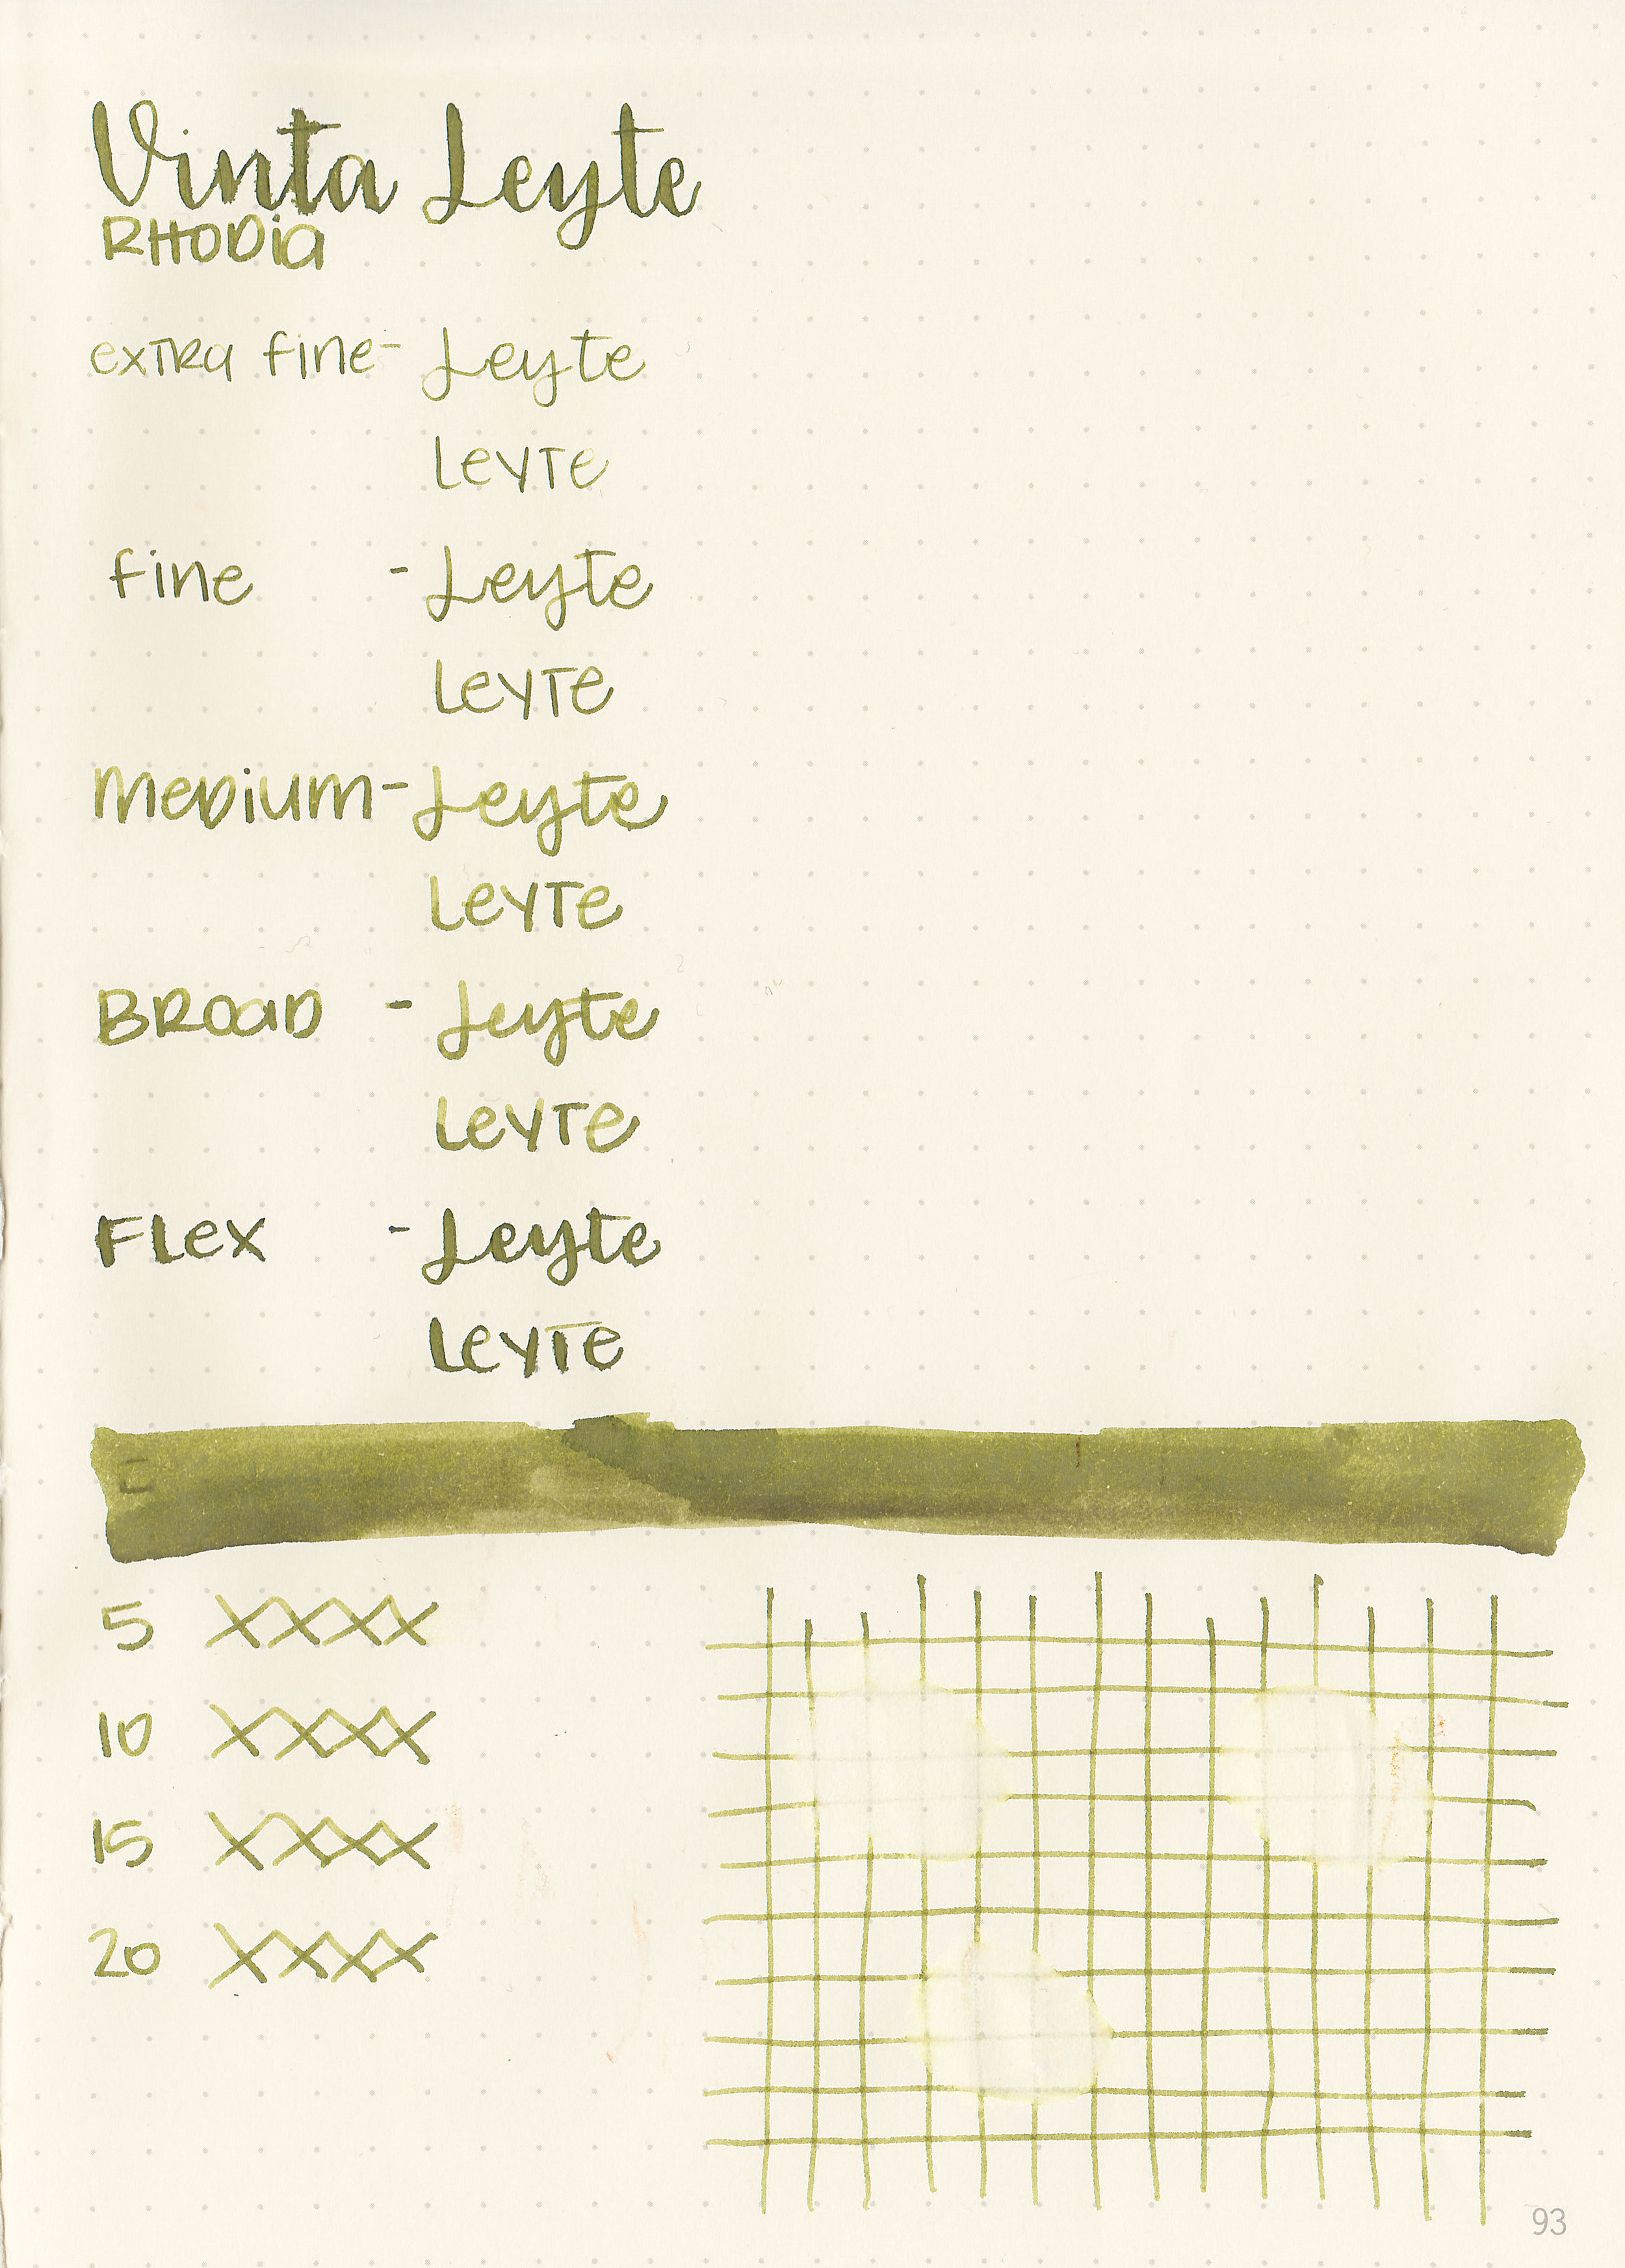 Vinta Leyte
RHODia
extra fine- Leyte
Leyte
fine - Leyte
Leyte
MeDium- Leyte
Leyte
BRoaD - Leyte
Leyte
FLex - Leyte
Leyte
5 XXXX
10 XXXX
15 XXXX
20 XXXX
93